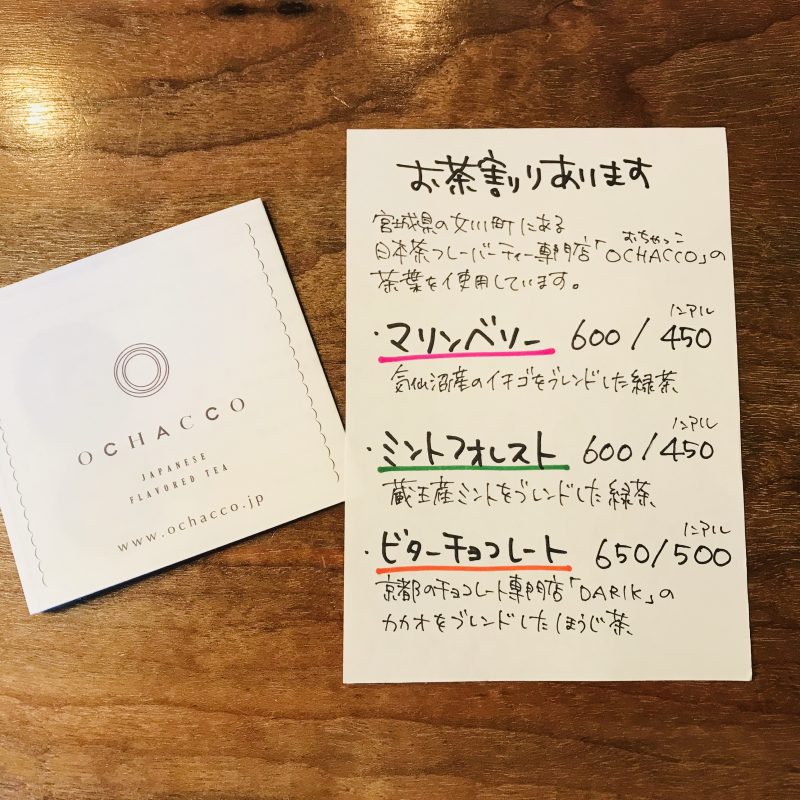 OCHACCO
JAPANESE
FLAVORED TEA
www.ochacco.jp
お茶割りあります
宮城県の女川町にある
おちゃっこ
日本茶フレーバーティー専門店「OCHACCO」の
茶葉を使用しています。
ノンアル
・マリンベリー 600/450
気仙沼産のイチゴをブレンドした緑茶
ノンアル
・ミントフォレスト 600/450
蔵王産ミントをブレンドした緑茶
ノンアル
・ビターチョコレート 650/500
京都のチョコレート専門店「DARIK」の
カカオをブレンドしたほうじ茶